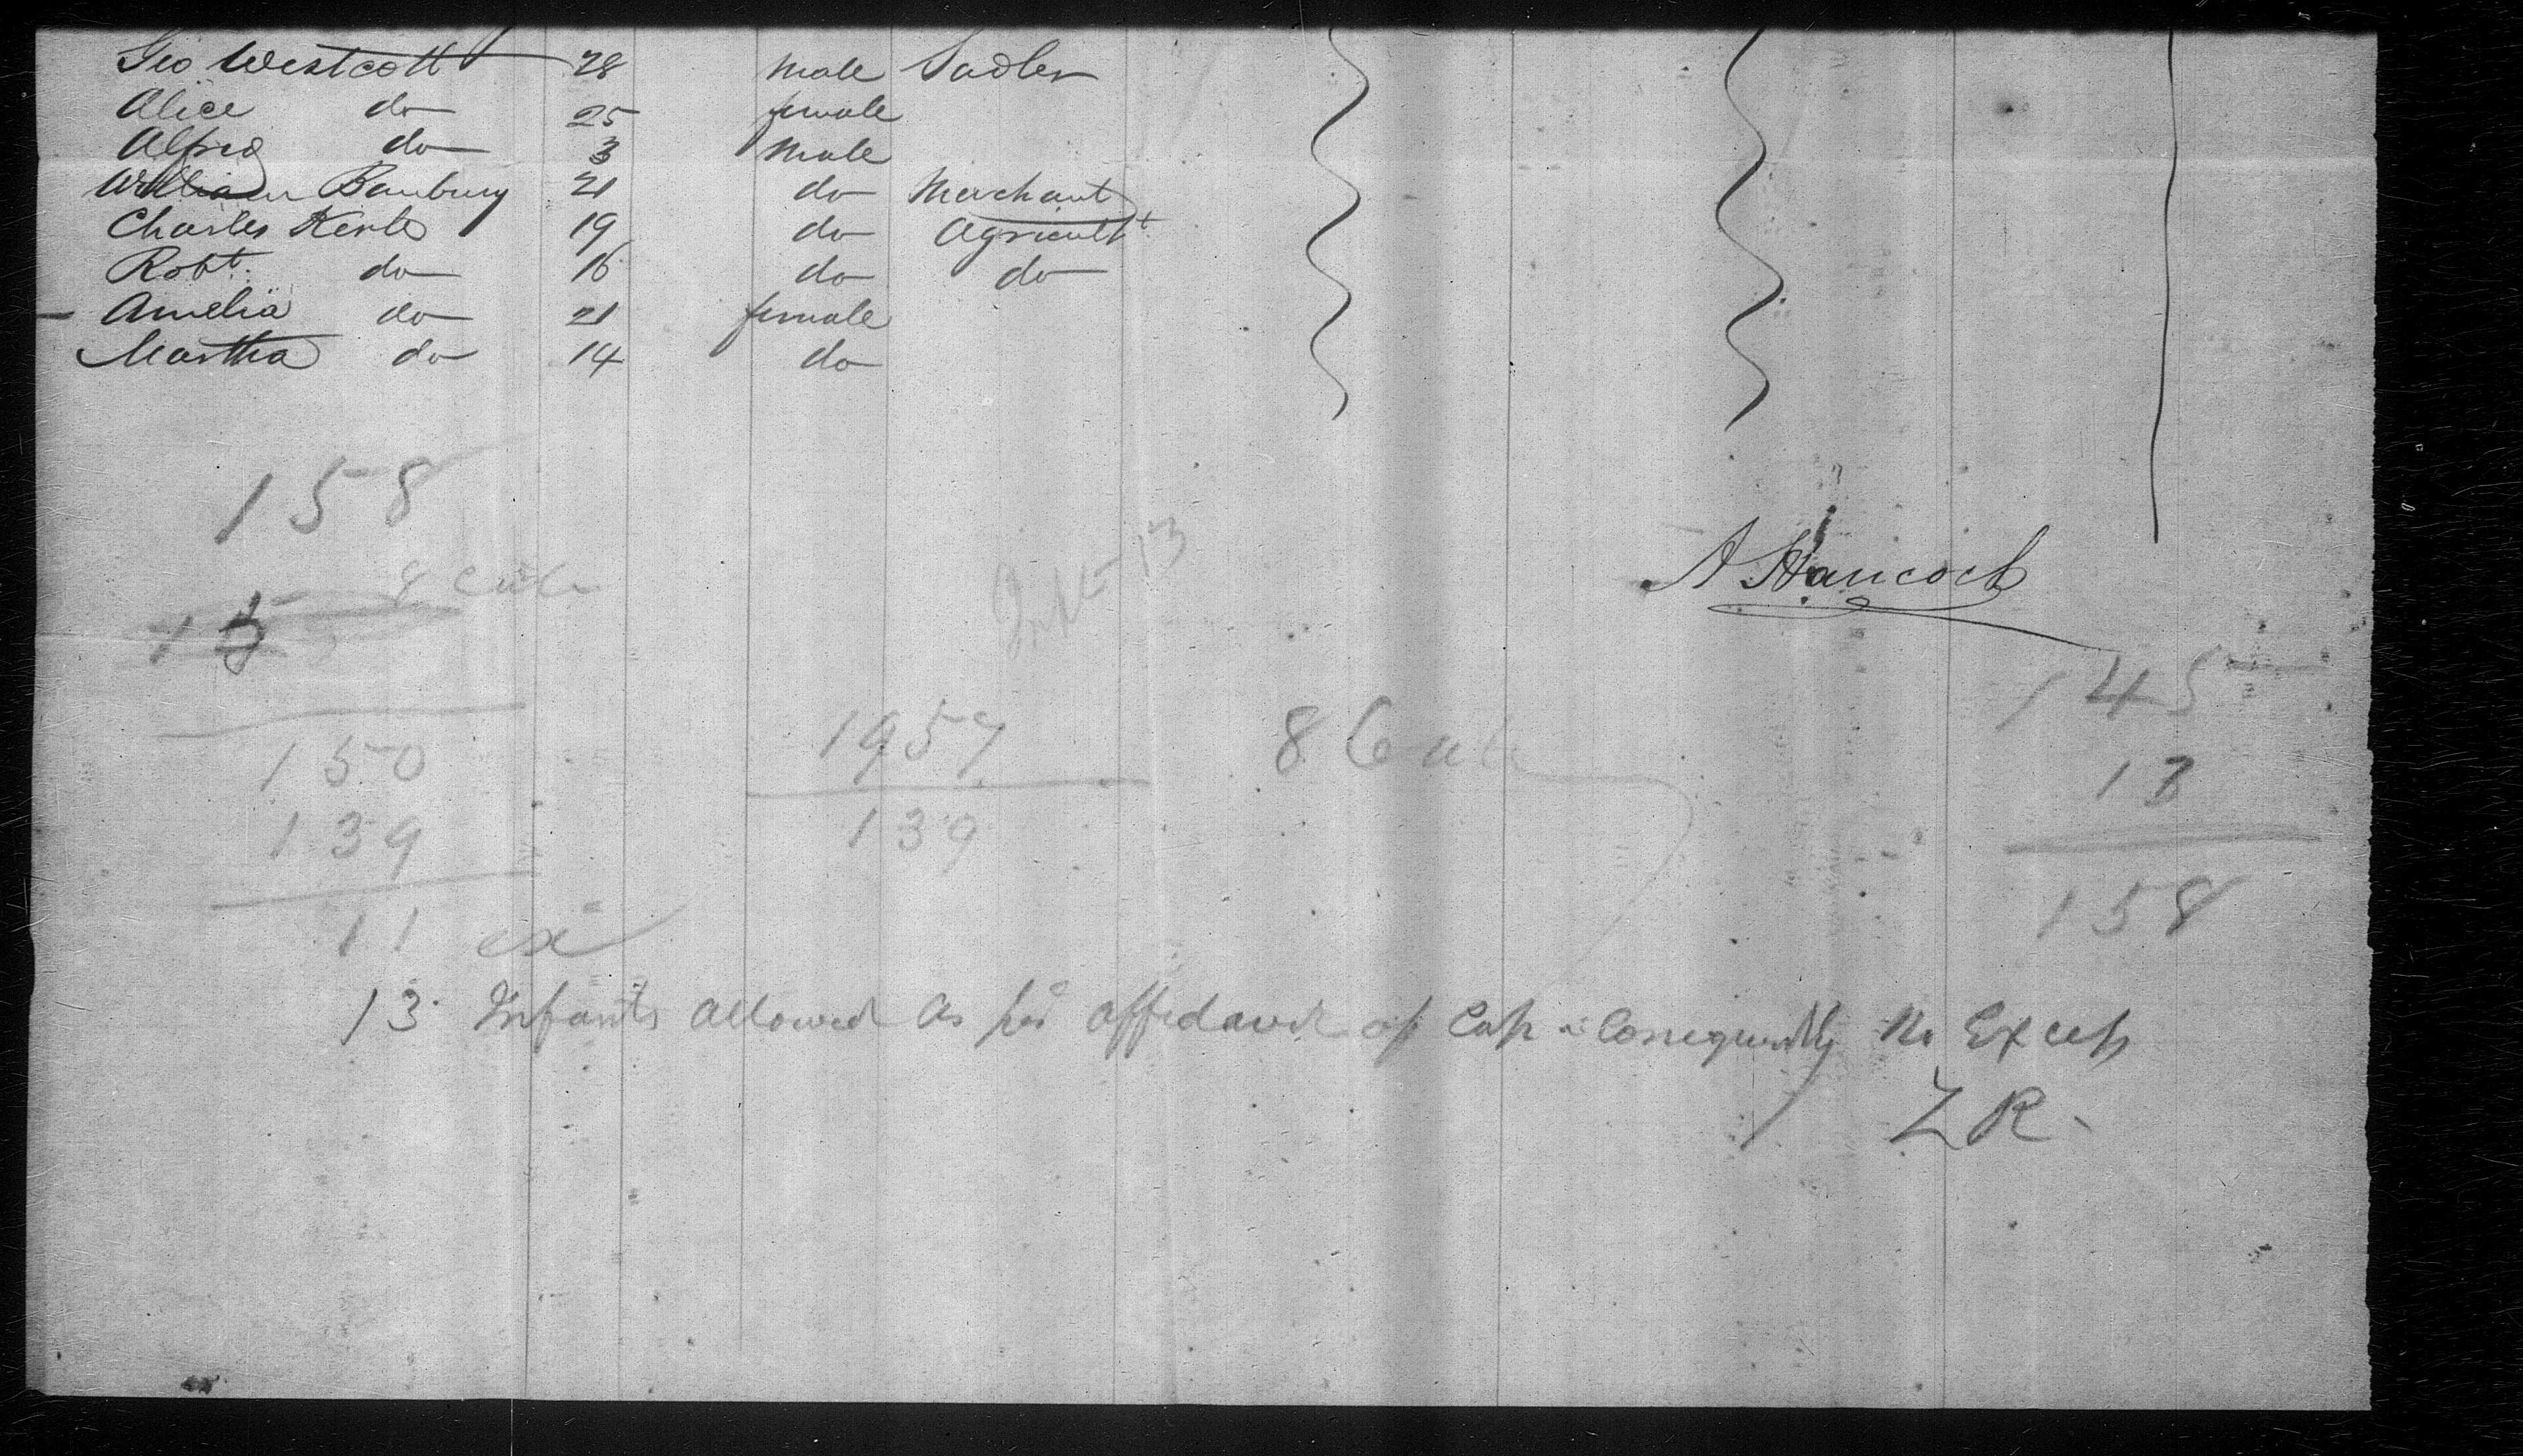 Geo Westcott 28 male Sadler
Alice do 25 female
Alfred do 3 male
William Banbury 21 do Merchant
Charles Kerle 19 do Agricultt
Robt. do 16 do do
Amelia do 21 female
Martha do 14 do
158
A Hancock
8
13
145
150
1957
8
13
139
139
158
11 ex
13 Infants allowed as per affidavit of Cap Consequently No Excess
ZR